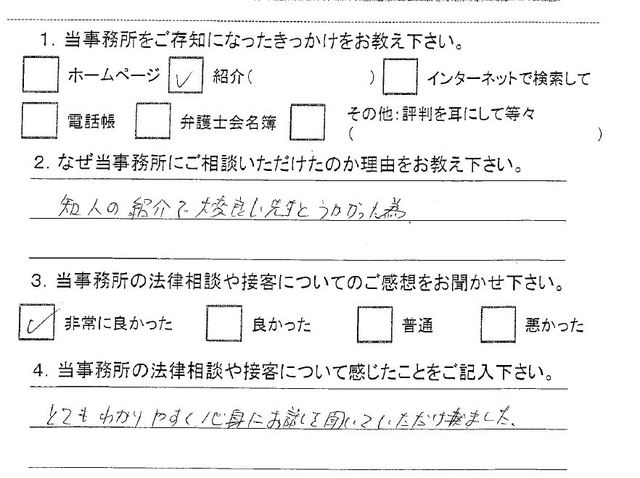 1. 当事務所をご存知になったきっかけをお教え下さい。
ホームページ 紹介( ) インターネットで検索して
電話帳 弁護士会名簿 その他:評判を耳にして等々
( )
2. なぜ当事務所にご相談いただけたのか理由をお教え下さい。
知人の紹介で大変良い先生とうかがった為
3. 当事務所の法律相談や接客についてのご感想をお聞かせ下さい。
非常に良かった 良かった 普通 悪かった
4. 当事務所の法律相談や接客について感じたことをご記入下さい。
とてもわかりやすく心身にお話しを聞いていただけました。